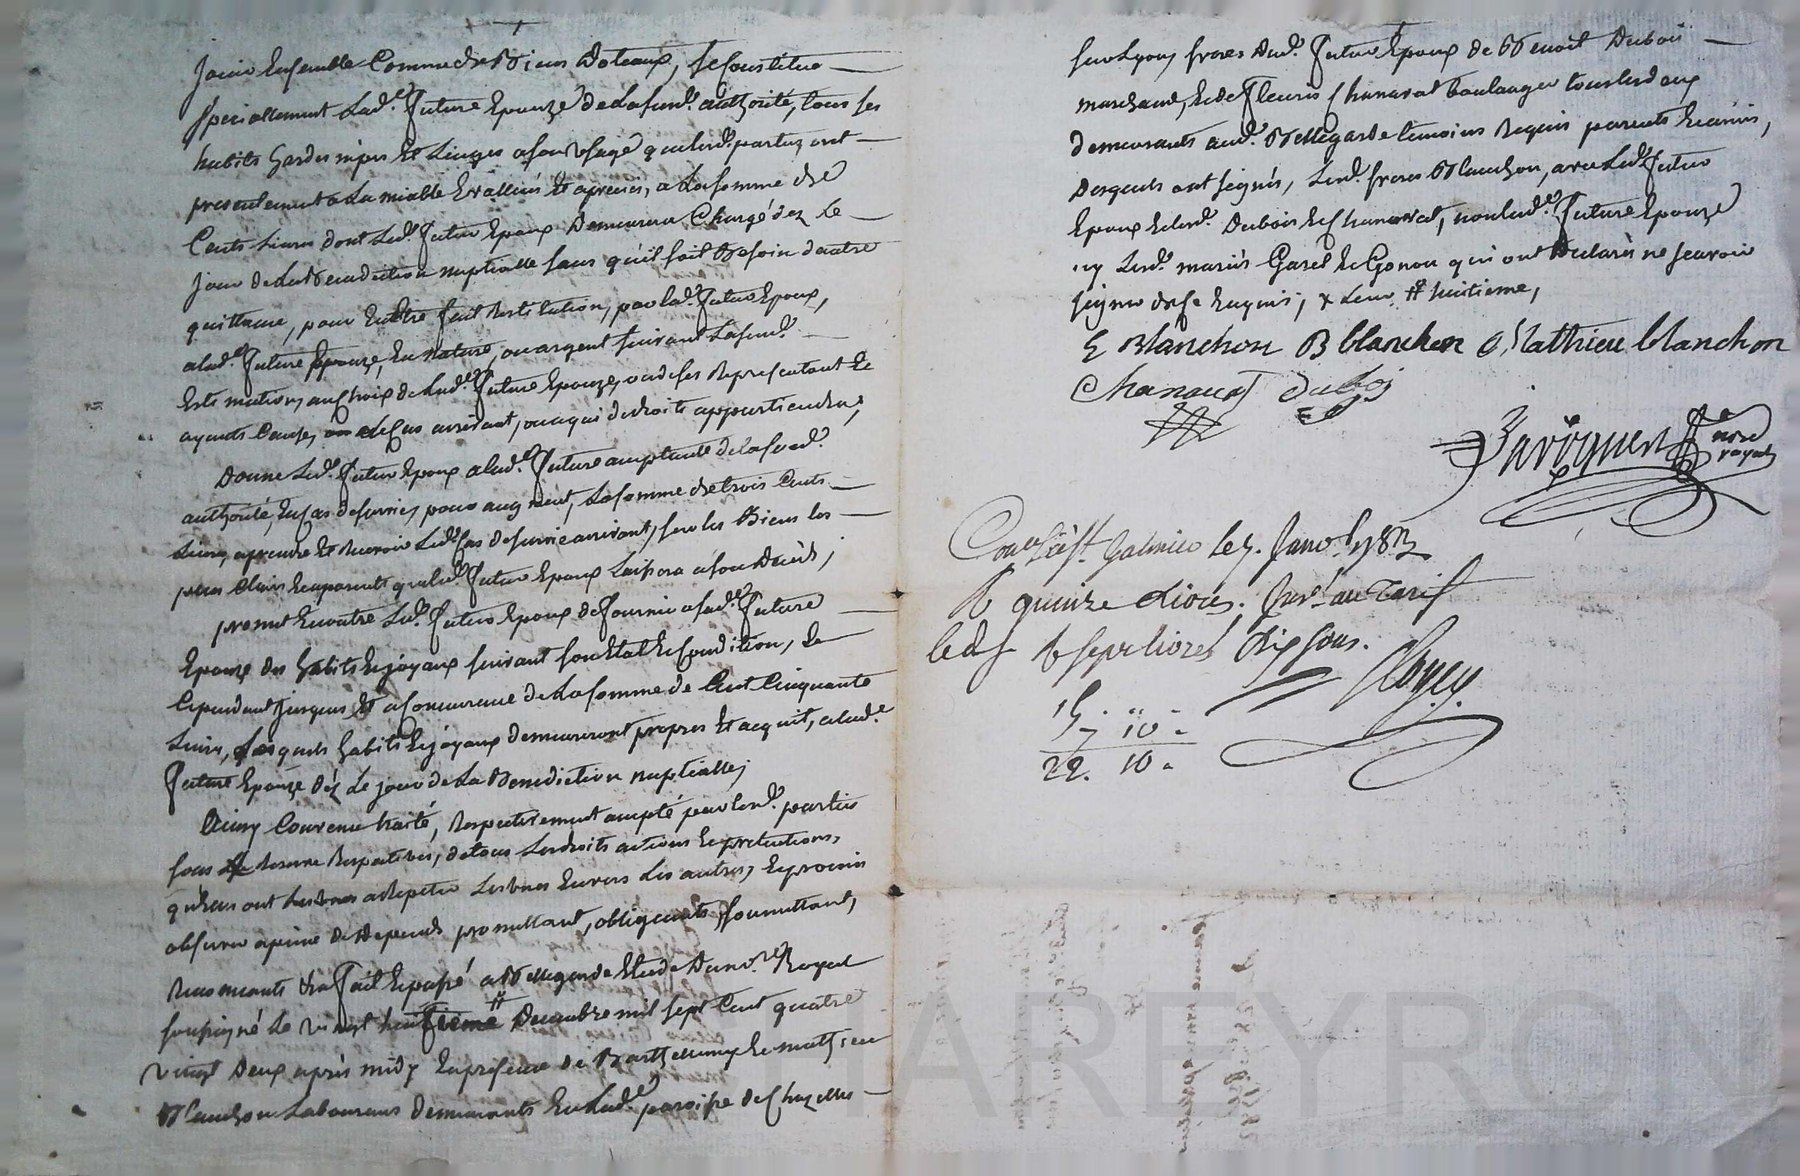 jouir Ensemble Comme de Biens Doteaux, se Constitue
specialement Lad.e future Epouze de La sus.d authorité, tous ses
habits hardes nipes Et Linges a son Usage que lesd. parties ont
presentement a Lamiable Evalluës Et apreciés, a La somme de
Cents Livres dont Led. futur Epoux Demeurera Chargé dez Le
Jour de La Benediction nuptialle sans qu'il soit Besoin dautre
quittance, pour En Etre fait Restitution, par led. futur Epoux,
a lad.e future Epouze, En nature, ou argent suivant La susd.
Estimation, au choix de Lad.e future Epouze, ou de ses Representant Et
ayants Cause, le Cas arrivant, ou a qui de droits appartiendra,
Donne Led. futur Epoux a lad.e future acceptante de La sued.
authorité, En Cas de survie, pour augment, La somme de trois Cents
Livres, a prendre Et Recevoir Led. Cas de survie arrivant, sur les Biens les
plus Clairs Et aparents que led. futur Epoux Laissera a son Deceds;
promet En outre Led. futur Epoux de fournir a lad.e future
Epouze des habits Et joyaux suivant son Etat Et Condition, Et
Cependant jusques Et a Concurrance de La somme de Cent Cinquante
Livres, Lesquels habits Et joyaux demeureront propres Et acquit, a lad.e
future Epouze déz Le jour de La Benediction nuptialle;
Ainsy Convenu traité, Respectivement accepté par lesd. parties
sous La Reserve Respective, de tous Les droits actions Et pretentions,
quelles ont Les unes a Repeter Les unes Envers Les autres, Et promis
observer a peine de Depends promettant, obligeants, soumettant,
Renonceants &a fait Et passé a Bellegarde Etude Du no.re Royal
soussigné Le vingt huitieme Decembre mil sept Cent quatre
vingt Deux après midy En presence de Barthellemy Et mathieu
Blanchon Laboureurs Demeurants En Lad.e paroisse de Chazelles
sur Lyon, freres dud. futur Epoux de Benoit Dubois
marchand, Et de fleuris Chanavat boulanger tous les deux
demeurants aud. Bellegarde temoins Requis parents Et amis,
Desquels ont signés, Lesd. freres Blanchon, avec Led. futur
Epoux Et lesd. Dubois Et Chanavat, non lad.e future Epouze
ny Lesd. mariés Garel Et Gonon qui ont Declarés ne scavoir
signer de ce Enquis; x Leur # huitieme,
E Blanchon B blanchon Mathieu blanchon
Chanavat Dubois
no.re
royal
Con.lé à St. Galmier le 7. Janv. 1783
R quinze Livres. au Tarif
R sept livres Dix sous.
15. „ -
7 10 -
22. 10 -